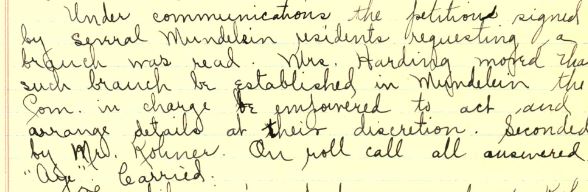 Under communications the petitions signed
by several Mundelein residents requesting a
branch was read. Mrs. Harding moved tha
such branch be established in Mundelein the
Com. in charge be empowered to act and
arrange details at their discretion. Seconded
by Mr. Rouner. On roll call all answered
"Aye" Carried.